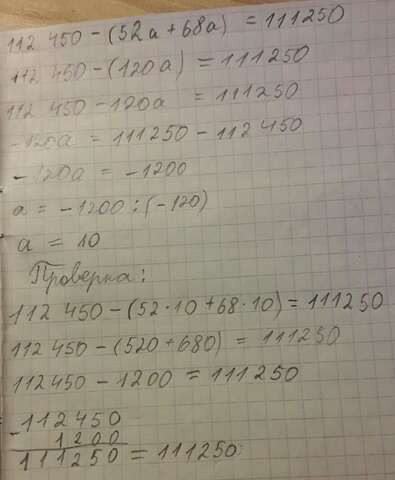 112 450 - (52a + 68a) = 111250
112 450 - (120a) = 111250
112 450 - 120a = 111250
-120a = 111250 - 112450
-120a = -1200
a = -1200 : (-120)
a = 10
Проверка:
112 450 - (52·10 + 68·10) = 111250
112 450 - (520 + 680) = 111250
112450 - 1200 = 111250
112450
- 1200
111250 = 111250